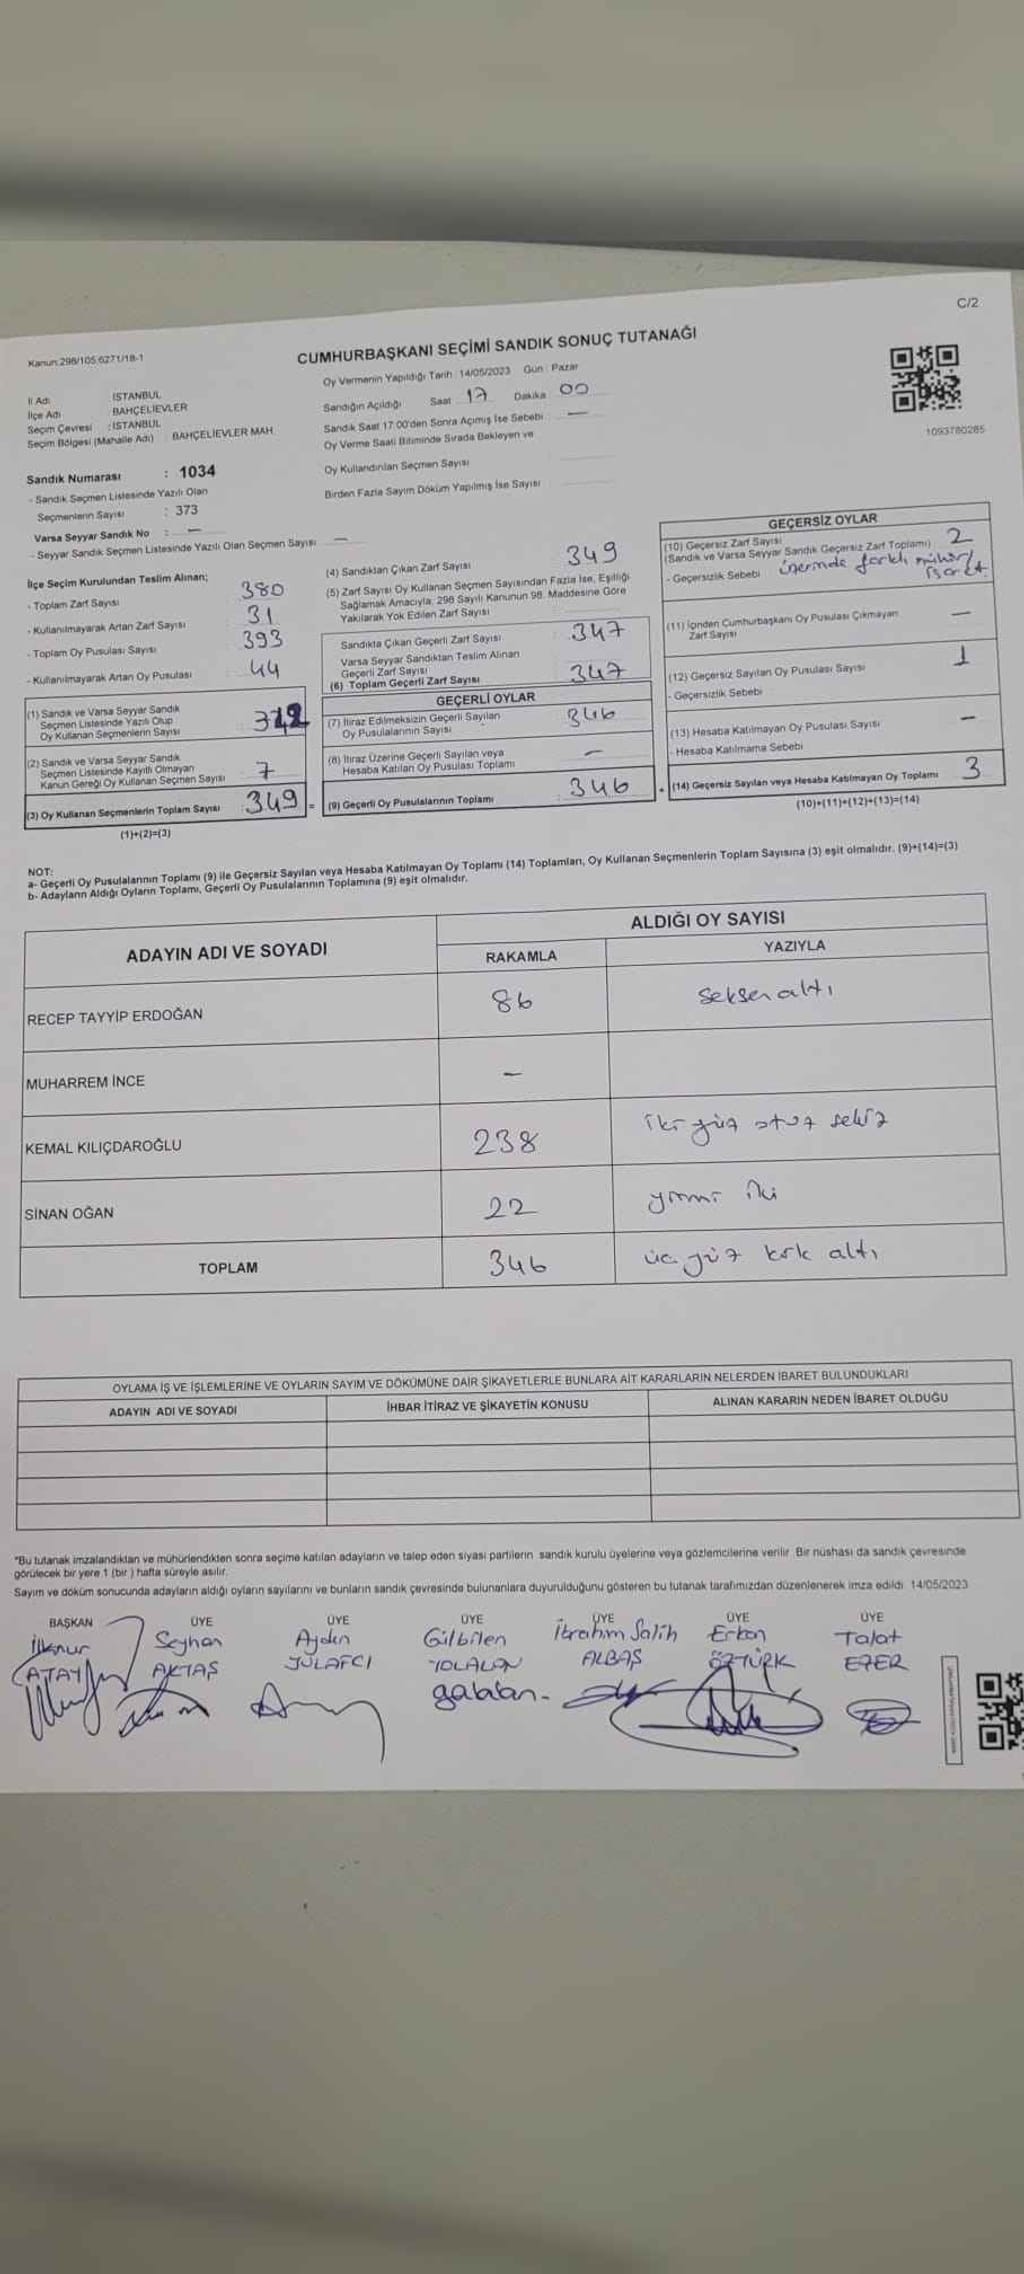 C/2
Kanun:298/105,6271/18-1
CUMHURBAŞKANI SEÇİMİ SANDIK SONUÇ TUTANAĞI
Oy Vermenin Yapıldığı Tarih : 14/05/2023 Gün : Pazar
İl Adı : İSTANBUL
İlçe Adı : BAHÇELİEVLER
Seçim Çevresi : İSTANBUL
Seçim Bölgesi (Mahalle Adı) : BAHÇELİEVLER MAH.
Sandığın Açıldığı Saat 17 Dakika 00
Sandık Saat 17:00'den Sonra Açımış İse Sebebi : —
Oy Verme Saati Bitiminde Sırada Bekleyen ve
Oy Kullandırılan Seçmen Sayısı
Birden Fazla Sayım Döküm Yapılmış İse Sayısı
1093780285
Sandık Numarası : 1034
- Sandık Seçmen Listesinde Yazılı Olan
Seçmenlerin Sayısı : 373
Varsa Seyyar Sandık No : —
- Seyyar Sandık Seçmen Listesinde Yazılı Olan Seçmen Sayısı : —
İlçe Seçim Kurulundan Teslim Alınan;
- Toplam Zarf Sayısı 380
- Kullanılmayarak Artan Zarf Sayısı 31
- Toplam Oy Pusulası Sayısı 393
- Kullanılmayarak Artan Oy Pusulası 44
(1) Sandık ve Varsa Seyyar Sandık
Seçmen Listesinde Yazılı Olup
Oy Kullanan Seçmenlerin Sayısı
(2) Sandık ve Varsa Seyyar Sandık
Seçmen Listesinde Kayıtlı Olmayan
Kanun Gereği Oy Kullanan Seçmen Sayısı 7
(3) Oy Kullanan Seçmenlerin Toplam Sayısı 349 =
(1)+(2)=(3)
(4) Sandıktan Çıkan Zarf Sayısı 349
(5) Zarf Sayısı Oy Kullanan Seçmen Sayısından Fazla İse, Eşitliği
Sağlamak Amacıyla; 298 Sayılı Kanunun 98. Maddesine Göre
Yakılarak Yok Edilen Zarf Sayısı
Sandıkta Çıkan Geçerli Zarf Sayısı 347
Varsa Seyyar Sandıktan Teslim Alınan
Geçerli Zarf Sayısı
(6) Toplam Geçerli Zarf Sayısı 347
GEÇERLİ OYLAR
(7) İtiraz Edilmeksizin Geçerli Sayılan
Oy Pusulalarının Sayısı 346
(8) İtiraz Üzerine Geçerli Sayılan veya
Hesaba Katılan Oy Pusulası Toplamı —
(9) Geçerli Oy Pusulalarının Toplamı 346 +
GEÇERSİZ OYLAR
(10) Geçersiz Zarf Sayısı
(Sandık ve Varsa Seyyar Sandık Geçersiz Zarf Toplamı) 2
- Geçersizlik Sebebi üzerinde farklı mühür/
işaret.
(11) İçinden Cumhurbaşkanı Oy Pusulası Çıkmayan
Zarf Sayısı —
(12) Geçersiz Sayılan Oy Pusulası Sayısı 1
- Geçersizlik Sebebi
(13) Hesaba Katılmayan Oy Pusulası Sayısı —
- Hesaba Katılmama Sebebi
(14) Geçersiz Sayılan veya Hesaba Katılmayan Oy Toplamı 3
(10)+(11)+(12)+(13)=(14)
NOT:
a- Geçerli Oy Pusulalarının Toplamı (9) ile Geçersiz Sayılan veya Hesaba Katılmayan Oy Toplamı (14) Toplamları, Oy Kullanan Seçmenlerin Toplam Sayısına (3) eşit olmalıdır. (9)+(14)=(3)
b- Adayların Aldığı Oyların Toplamı, Geçerli Oy Pusulalarının Toplamına (9) eşit olmalıdır.
ADAYIN ADI VE SOYADI
ALDIĞI OY SAYISI
RAKAMLA YAZIYLA
RECEP TAYYİP ERDOĞAN 86 seksen altı
MUHARREM İNCE —
KEMAL KILIÇDAROĞLU 238 iki yüz otuz sekiz
SİNAN OĞAN 22 yirmi iki
TOPLAM 346 üç yüz kırk altı
OYLAMA İŞ VE İŞLEMLERİNE VE OYLARIN SAYIM VE DÖKÜMÜNE DAİR ŞİKAYETLERLE BUNLARA AİT KARARLARIN NELERDEN İBARET BULUNDUKLARI
ADAYIN ADI VE SOYADI İHBAR İTİRAZ VE ŞİKAYETİN KONUSU ALINAN KARARIN NEDEN İBARET OLDUĞU
*Bu tutanak imzalandıktan ve mühürlendikten sonra seçime katılan adayların ve talep eden siyasi partilerin sandık kurulu üyelerine veya gözlemcilerine verilir. Bir nüshası da sandık çevresinde
görülecek bir yere 1 (bir) hafta süreyle asılır.
Sayım ve döküm sonucunda adayların aldığı oyların sayılarını ve bunların sandık çevresinde bulunanlara duyurulduğunu gösteren bu tutanak tarafımızdan düzenlenerek imza edildi. 14/05/2023
BAŞKAN ÜYE ÜYE ÜYE ÜYE ÜYE ÜYE
İlknur Seyhan Aydın Gülbilen İbrahim Salih Erkan Talat
ATAY AKTAŞ JULAFCI YOLALAN ALBAŞ ÖZTÜRK EZER